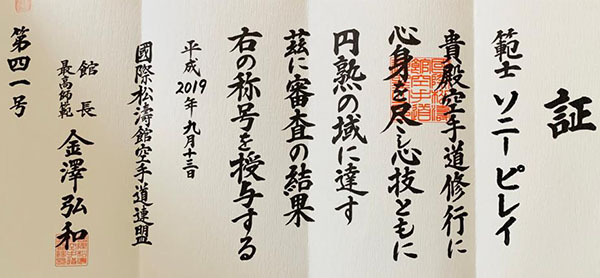 証
範士 ソニーピレイ
貴殿空手道修行に
心身を尽し心技ともに
円熟の域に達す
茲に審査の結果
右の称号を授与する
平成2019年九月十三日
國際松濤館空手道連盟
館長
最高師範
金澤弘和
第四一号